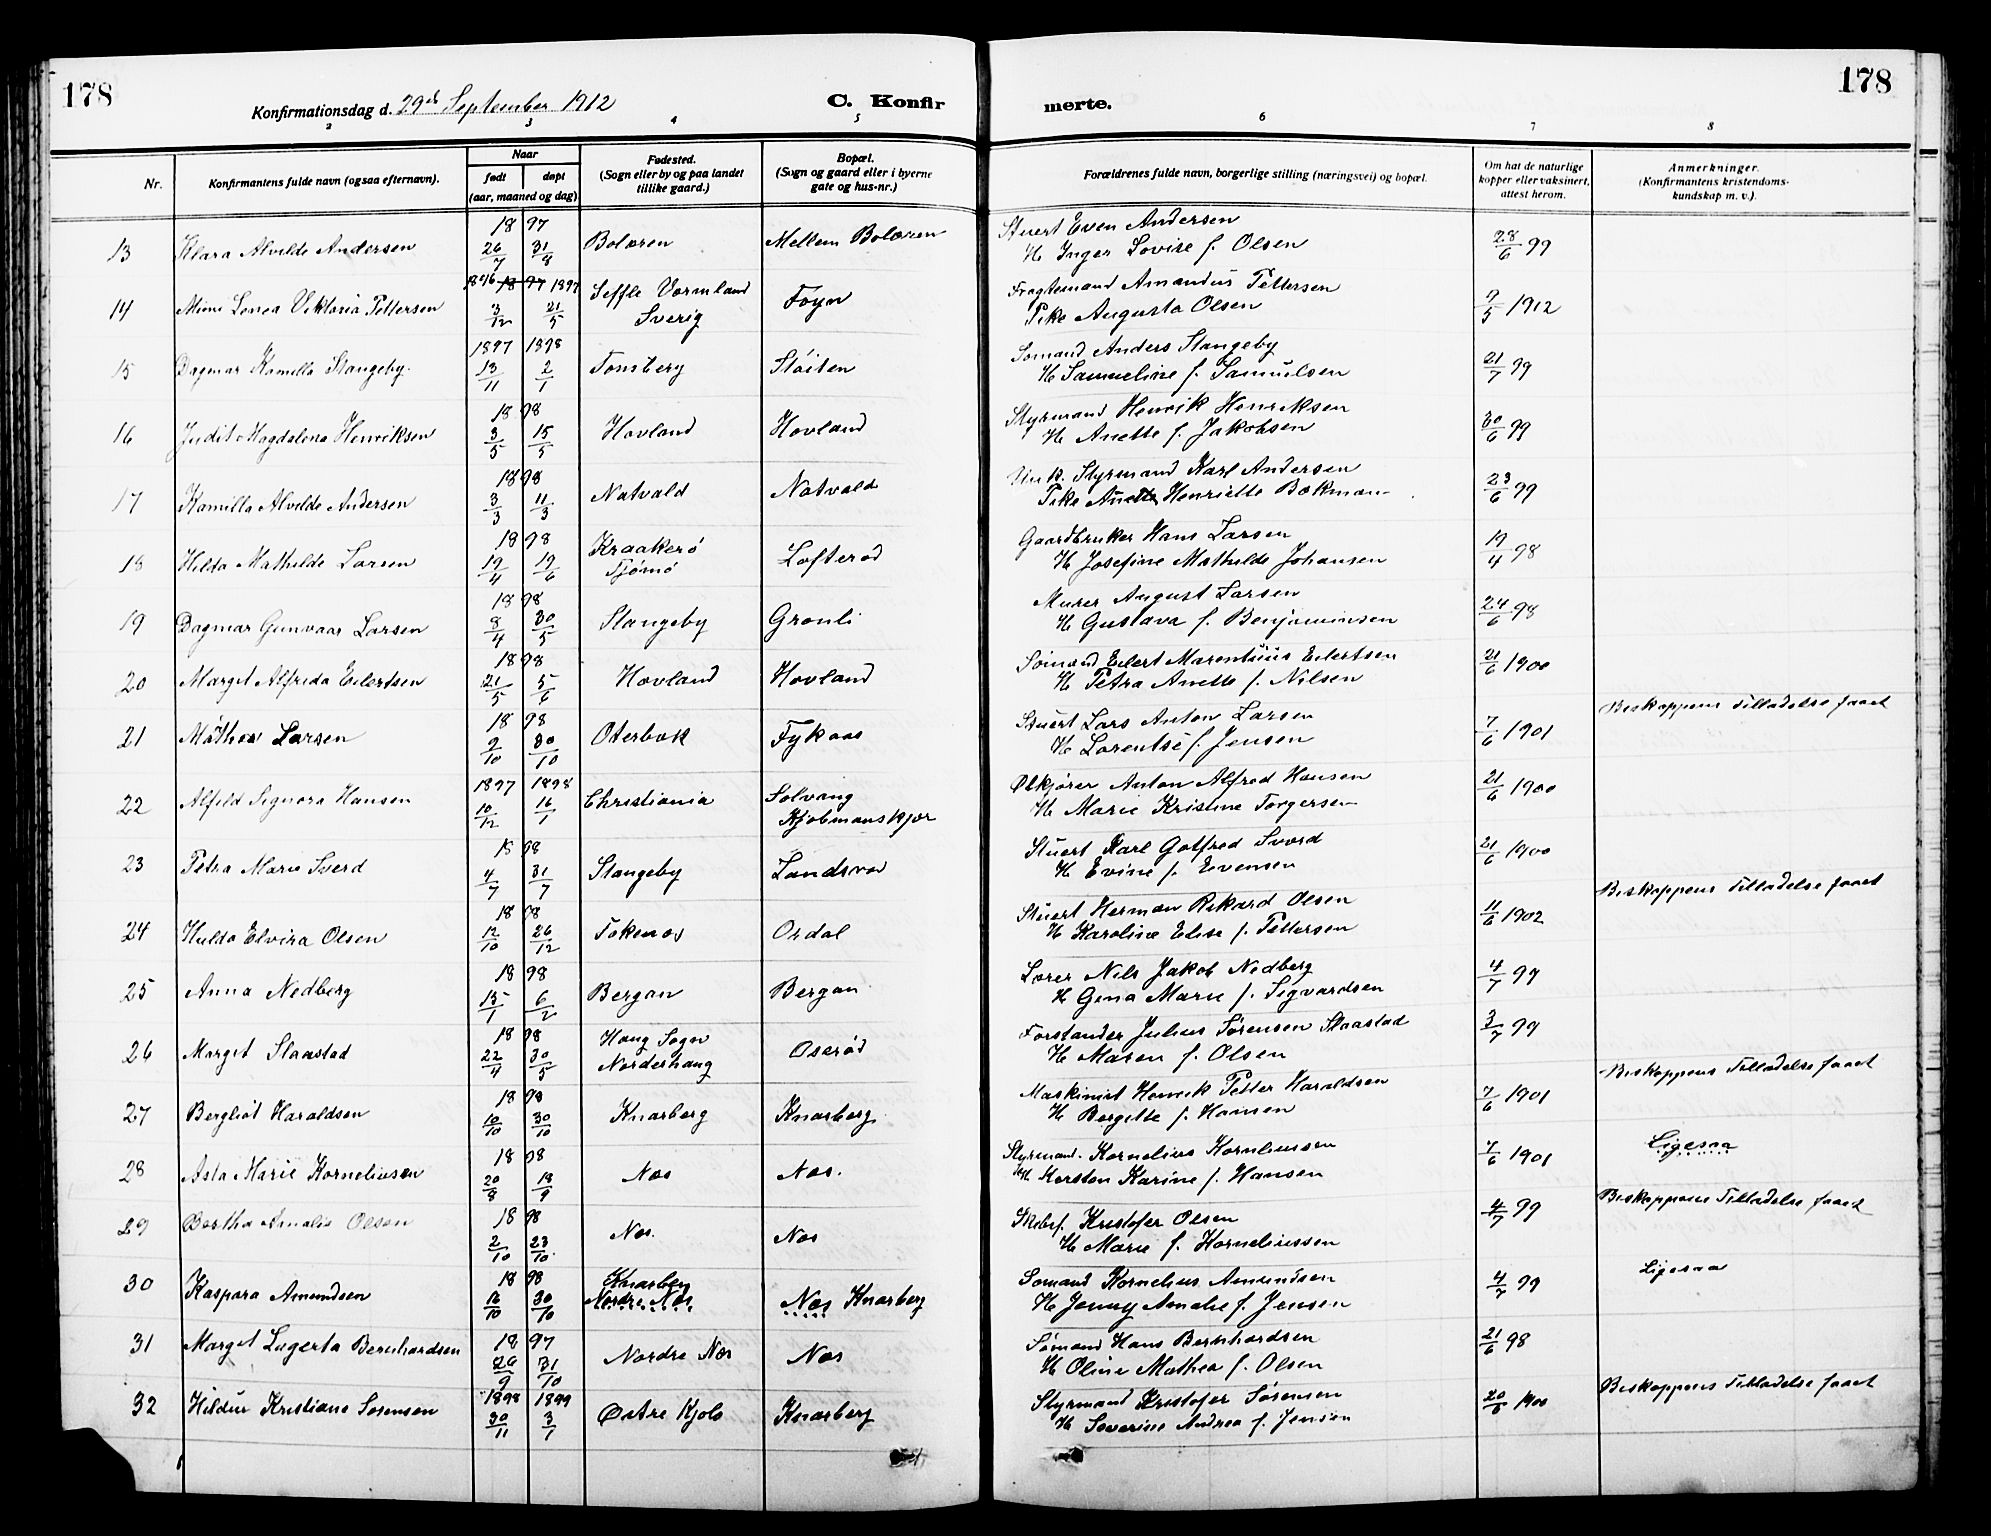 178
Konfirmationsdag d. 29de September 1912
C. Konfir
merte.
178
2 3 4 5 6 7 8
Nr.
Konfirmantens fulde navn (ogsaa efternavn).
Naar
født døpt
(aar, maaned og dag)
Fødested.
(Sogn eller by og paa landet
tillike gaard.)
Bopæl.
(Sogn og gaard eller i byerne
gate og hus-nr.)
Forældrenes fulde navn, borgerlige stilling (næringsvei) og bopæl.
Om hat de naturlige
kopper eller vaksinert,
attest herom.
Anmerkninger.
(Konfirmantens kristendoms-
kundskap m. v.).
18 97
13 Klara Alvilde Andersen 26/7 31/8 Bolæren Mellem Bolæren Stuert Even Andersen 28/6 99
H. Inger Lovise f. Olsen
1896 18 97 1897
14 Mimi Linea Viktoria Pettersen 3/12 21/5 Seffle Vermland Foyn Fragtemand Amandus Pettersen 7/5 1912
Sverig Pike Augusta Olsen
1897 1898
15 Dagmar Kamilla Stangeby. 13/11 2/1 Tønsberg Støiten Sømand Anders Stangeby 21/7 99
H. Samueline f. Samuelsen
18 98
16 Judit Magdalena Henriksen 3/5 15/5 Hovland Hovland Styrmand Henrik Henriksen 30/6 99
H. Anette f. Jakobsen
18 98
17 Kamilla Alvilde Andersen 3/3 11/3 Natvald Natvald Styrmand Karl Andersen 23/6 99
Pike Anette Henriette Bökman
18 98
18 Hilda Mathilde Larsen 19/4 19/6 Kraakerø Lofterød Gaardbruker Hans Larsen 19/4 98
Tjømø H. Josefine Mathilde Johansen
18 98
19 Dagmar Gunvaar Larsen 8/4 30/5 Stangeby Grønli Murer August Larsen 24/6 98
H. Gustava f. Benjaminsen
18 98
20 Marget Alfrida Eilertsen 21/5 5/6 Hovland Hovland Sømand Eilert Marentiüs Eilertsen 21/6 1900
H. Petra Anette f. Nilsen
18 98 Biskoppens Tilladelse faaet
21 Mathea Larsen 2/10 30/10 Oterbæk Fykaas Stuert Lars Anton Larsen 7/6 1901
H. Lorentse f. Jensen
1897 1898
22 Alfild Signora Hansen 10/12 16/1 Christiania Solvang Ølkjører Anton Alfred Hansen 21/6 1900
Kjøbmanskjær H. Marie Kristine Torgersen
18 98
23 Petra Marie Sverd 4/7 31/7 Stangeby Landsrød Stuert Karl Gotfred Sverd 21/6 1900
H. Evine f. Evensen
18 98 Biskoppens Tilladelse faaet
24 Hulda Elvira Olsen 12/10 26/12 Tokenes Ordal Stuert Herman Rikard Olsen 11/6 1902
H. Karoline Elise f. Pettersen
18 98
25 Anna Nedberg 15/1 6/2 Bergan Bergan Lærer Nils Jakob Nedberg 4/7 99
H. Gina Marie f. Sigvardsen
18 98
26 Marget Slaastad 22/4 30/5 Haug Sogn Oserød Forstander Julius Sørensen Slaastad 3/7 99
Norderhaug H. Maren f. Olsen
18 98 Biskoppens Tilladelse faaet
27 Bergliot Haraldsen 10/10 30/10 Knarberg Knarberg Maskinist Henrik Petter Haraldsen 7/6 1901
H. Bergitte f. Hansen
18 98 Ligesaa
28 Asta Marie Korneliusen 20/8 18/9 Næs Næs. Styrmand. Kornelius Korneliussen 7/6 1901
H. Kirsten Karine f. Hansen
18 98 Biskoppens Tilladelse faaet
29 Bertha Amalie Olsen 2/10 23/10 Næs. Næs Skibsf. Kristofer Olsen 4/7 99
H. Marie f. Korneliussen
18 98 Ligesaa
30 Kaspara Amundsen 16/10 30/10 Knarberg Nordre Næs Næs Knarberg Sømand Kornelius Amundsen 4/7 99
H. Jenny Amalie f. Jensen
18 97
31 Marget Lagerta Bernhardsen 26/9 31/10 Nordre Næs Næs Sømand Hans Bernhardsen 21/6 98
H. Oline Mathea f. Olsen
1898 1899 Biskoppens Tilladelse faaet
32 Hildur Kristiane Sørensen 30/11 3/1 Østre Kjøle Knarberg Styrmand Kristofer Sørensen 1900
H. Severine Andrea f. Jensen